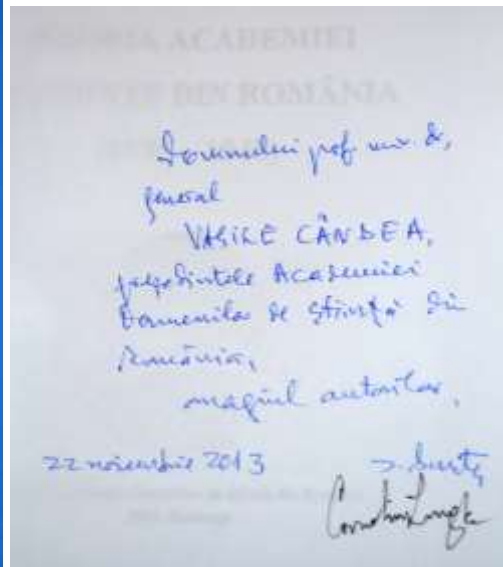 Domnului prof univ dr,
general
VASILE CÂNDEA,
președintele Academiei
Oamenilor de Știință din
România,
omagiul autorilor,
22 noiembrie 2013